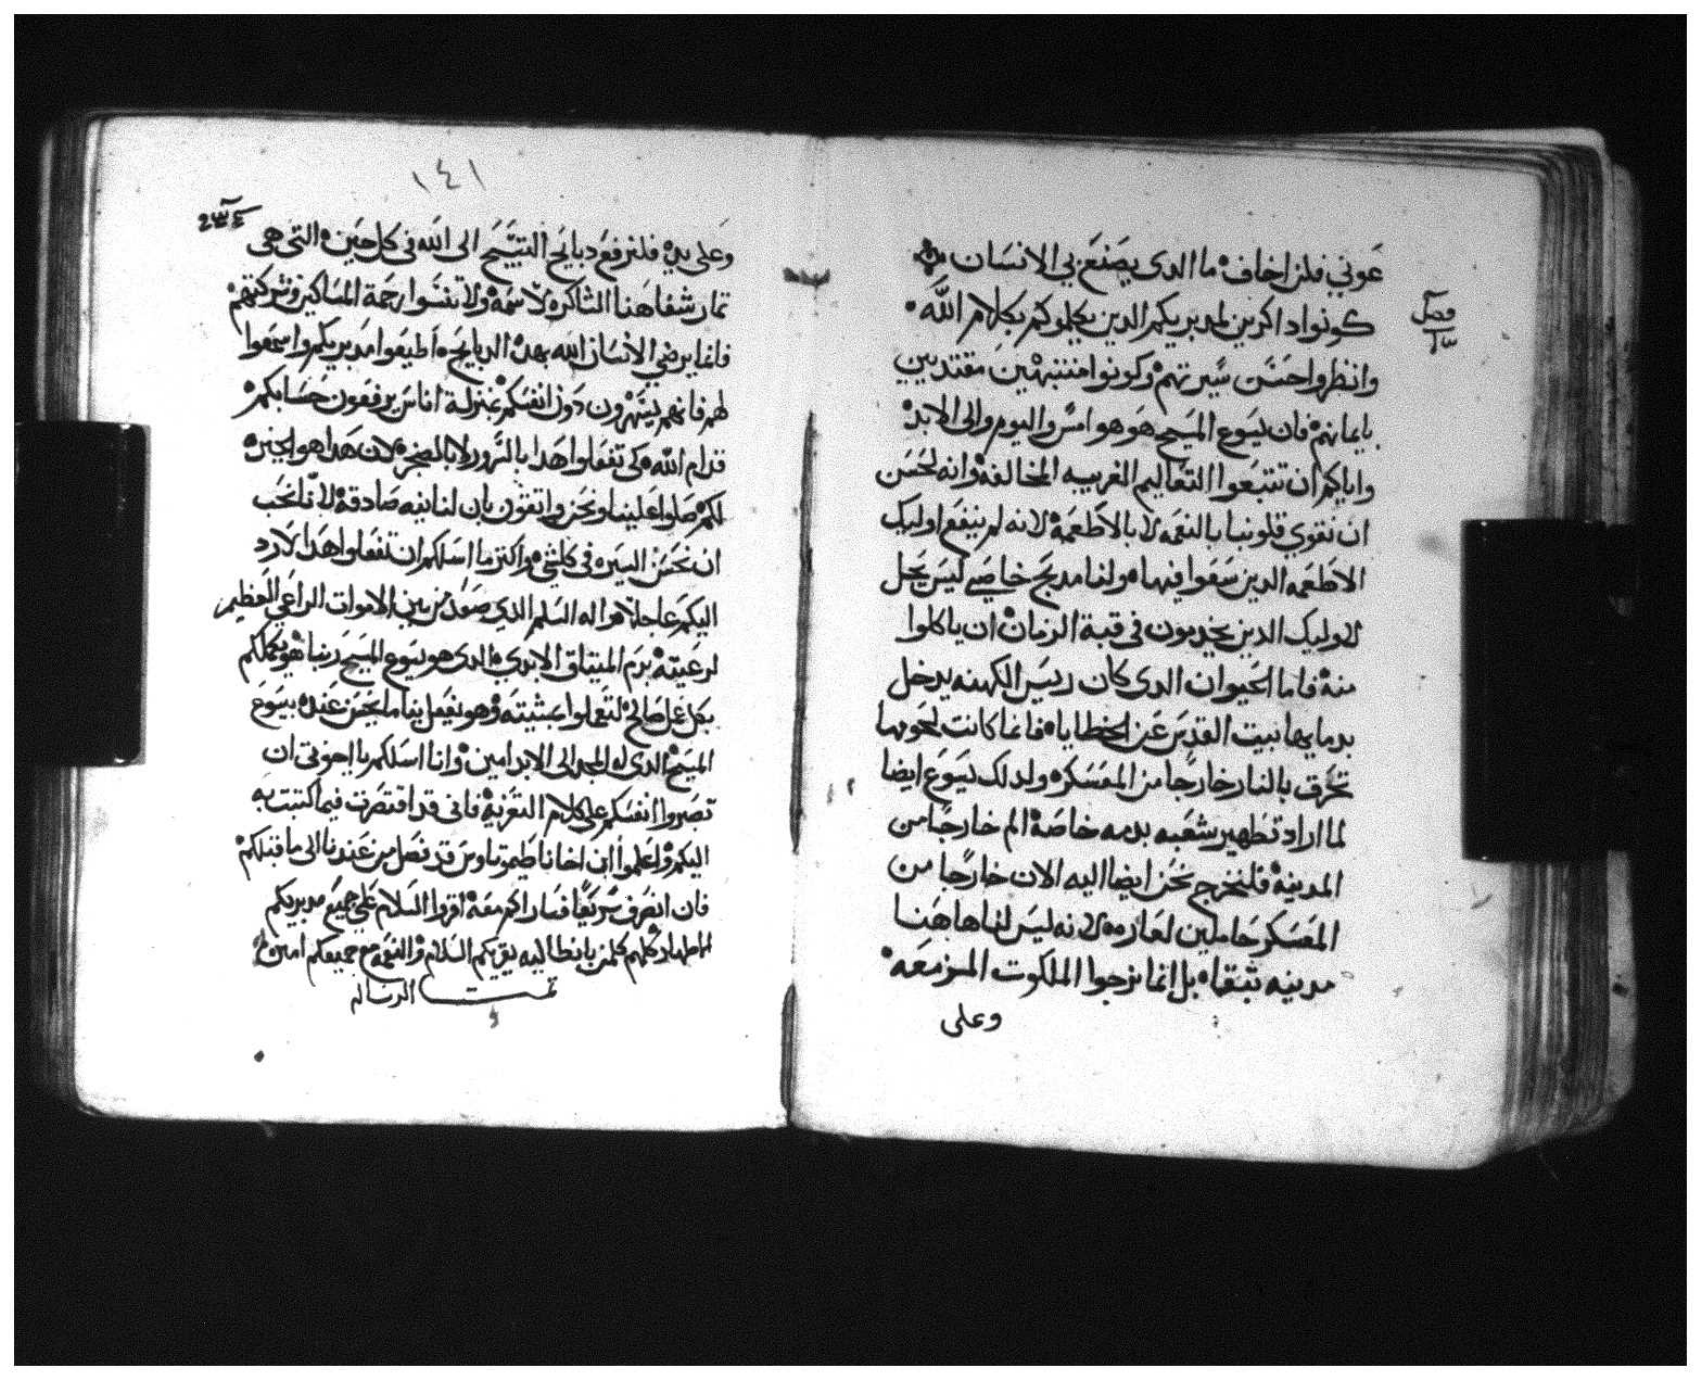 عوني فلن اخاف ما الدي يصنع بي الانسان
فصل
كونوا داكرين لمدبريكم الدين يكلموكم بكلام الله
وانظروا حسن سيرتهم وكونوا متشبهين مقتديين
بايمانهم فان يسوع المسيح هو هو امس واليوم والى الابد
واياكم ان تتبعوا التعاليم الغريبه المخالفه وانه لحسن
ان نقوي قلوبنا بالنعمه لا بالاطعمة لانه لم ينتفع اوليك
الاطعمه الدين سعوا فيها ولنا مدبح خاصي ليس يحل
لاوليك الدين يخدمون في قبة الزمان ان ياكلوا
منه فاما الحيوان الدي كان ريس الكهنه يدخل
بدمايها بيت القدس عن الخطايا فانما كانت لحومها
تحرق بالنار خارجا من المعسكر ولدلك يسوع ايضا
لما اراد تطهير شعبه بدمه خاصة الم خارجا من
المدينه فلنخرج نحن ايضا اليه الان خارجا من
المعسكر حاملين لعاره لانه ليس لنا هاهنا
مدينه تبقا بل انما نرجوا الملكوت المزمعه
وعلى
١٤١
وعلى يديه فلنرفع دبايح التسبيح الى الله في كل حين التي هي
تمار شفاهنا الشاكره لاسمه ولا تنسوا رحمة المساكين وشركتهم
فانما يرضي الانسان الله بهده الدبايح اطيعوا مدبريكم واسمعوا
لهم فانهم يسهرون دون انفسكم بمنزلة اناس يرفعون حسابكم
قدام الله كي تفعلوا هدا بالسرور لا بالضجر لان هدا هو اخير
لكم صلوا علينا ونحن واتقون بان لنا نيه صادقه لانا نحب
ان نحسن السيره في كل شي واكتر ما اسلكم ان تفعلوا هدا لارد
اليكم عاجلا واله السلم الدي صعد من بين الاموات الراعي العظيم
لرعيته بدم الميتاق الابدي الدي هو يسوع المسيح ربنا هو يكملكم
بكل عمل صالح لتعملوا بمشيته وهو يفعل بنا ما يحسن عنده بيسوع
المسيح الدي له المجد الى الابد امين وانا اسلكم يا اخوتي ان
تصبروا انفسكم على كلام التعزيه فاني قد اقتصرت فيما كتبت به
اليكم واعلموا ان اخانا طيموتاوس قد فصل من عندنا الى ما قبلكم
فان انصرف سريعا فساراكم معه اقروا السلام على جميع مدبريكم
الاطهار كلهم كلمن بانطاليه يقريكم السلام والنعمه مع جميعكم امين
تمت الرساله